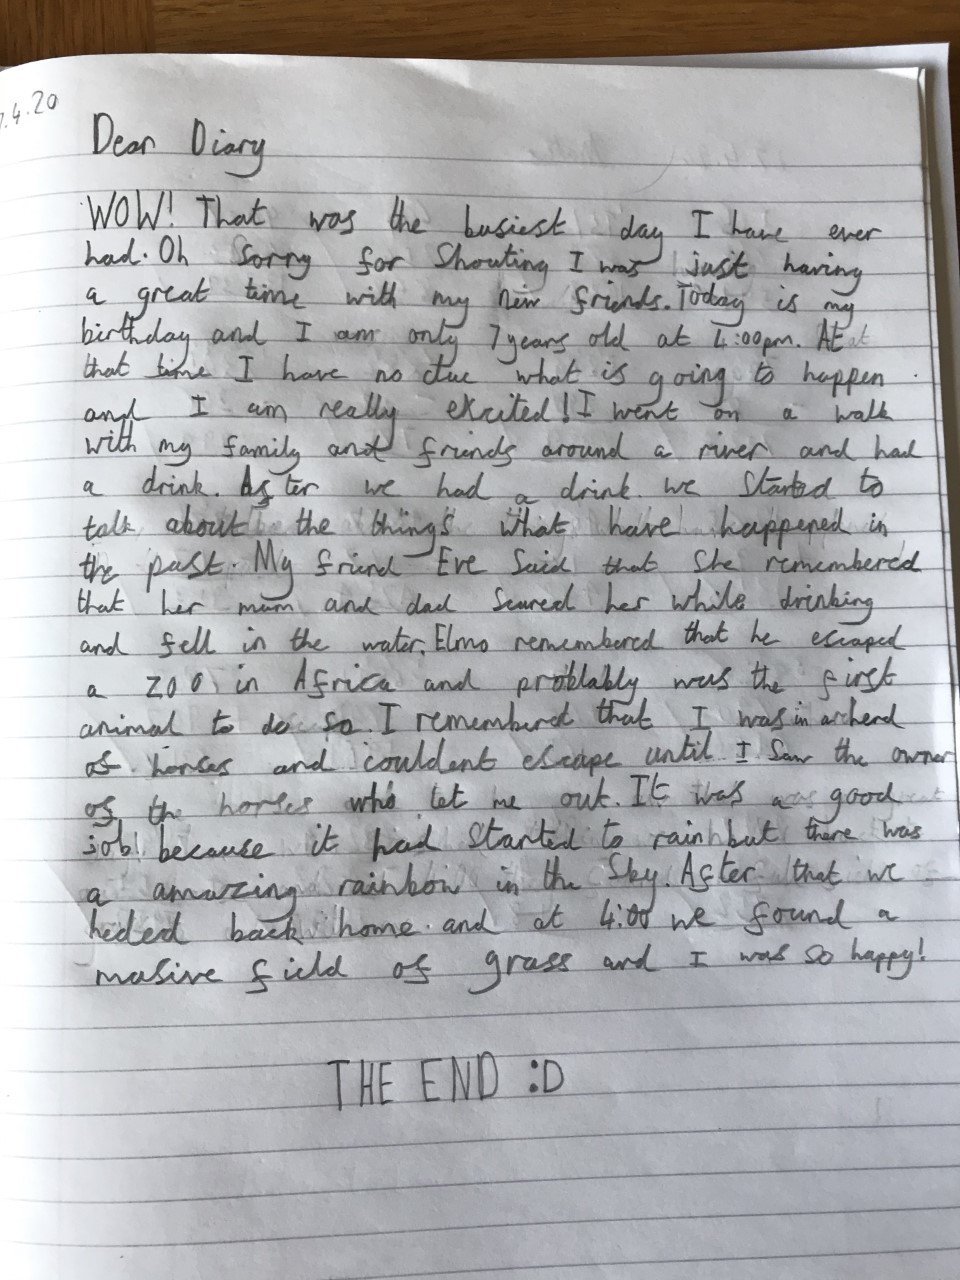 .4.20
Dear Diary
WOW! That was the busiest day I have ever
had. Oh Sorry for Shouting I was just having
a great time with my new friends. Today is my
birthday and I am only 7 years old at 4:00pm. At
that time I have no clue what is going to happen
and I am really excited! I went on a walk
with my family and friends around a river and had
a drink. After we had a drink we started to
talk about the things what have happened in
the past. My friend Eve Said that She remembered
that her mum and dad Scared her while drinking
and fell in the water. Elmo remembered that he escaped
a zoo in Africa and problably was the first
animal to do so. I rememberd that I was in a herd
of horses and couldent escape until I Saw the owner
of the horses who let me out. It was a good
job because it had started to rain but there was
a amazing rainbow in the Sky. After that we
heded back home and at 4:00 we found a
masive field of grass and I was so happy!
THE END :D